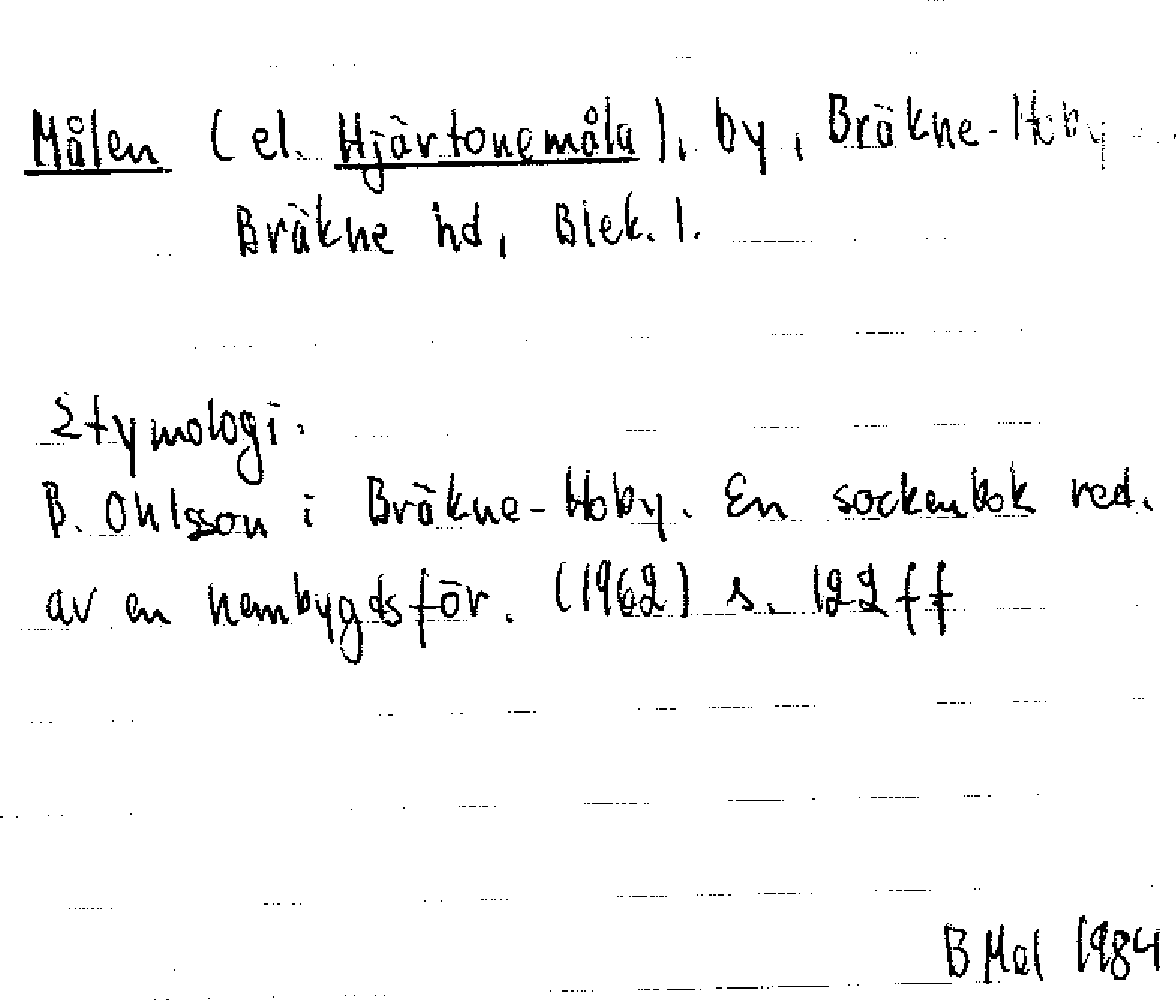 Målen (el. Hjärtonemåla), by, Bräkne-Hoby
Bräkne hd, Blek. l.
Etymologi.
B. Ohlsson i Bräkne-Hoby. En sockenbok red.
av en hembygdsför. (1962) s. 122 ff
B Mel 1984